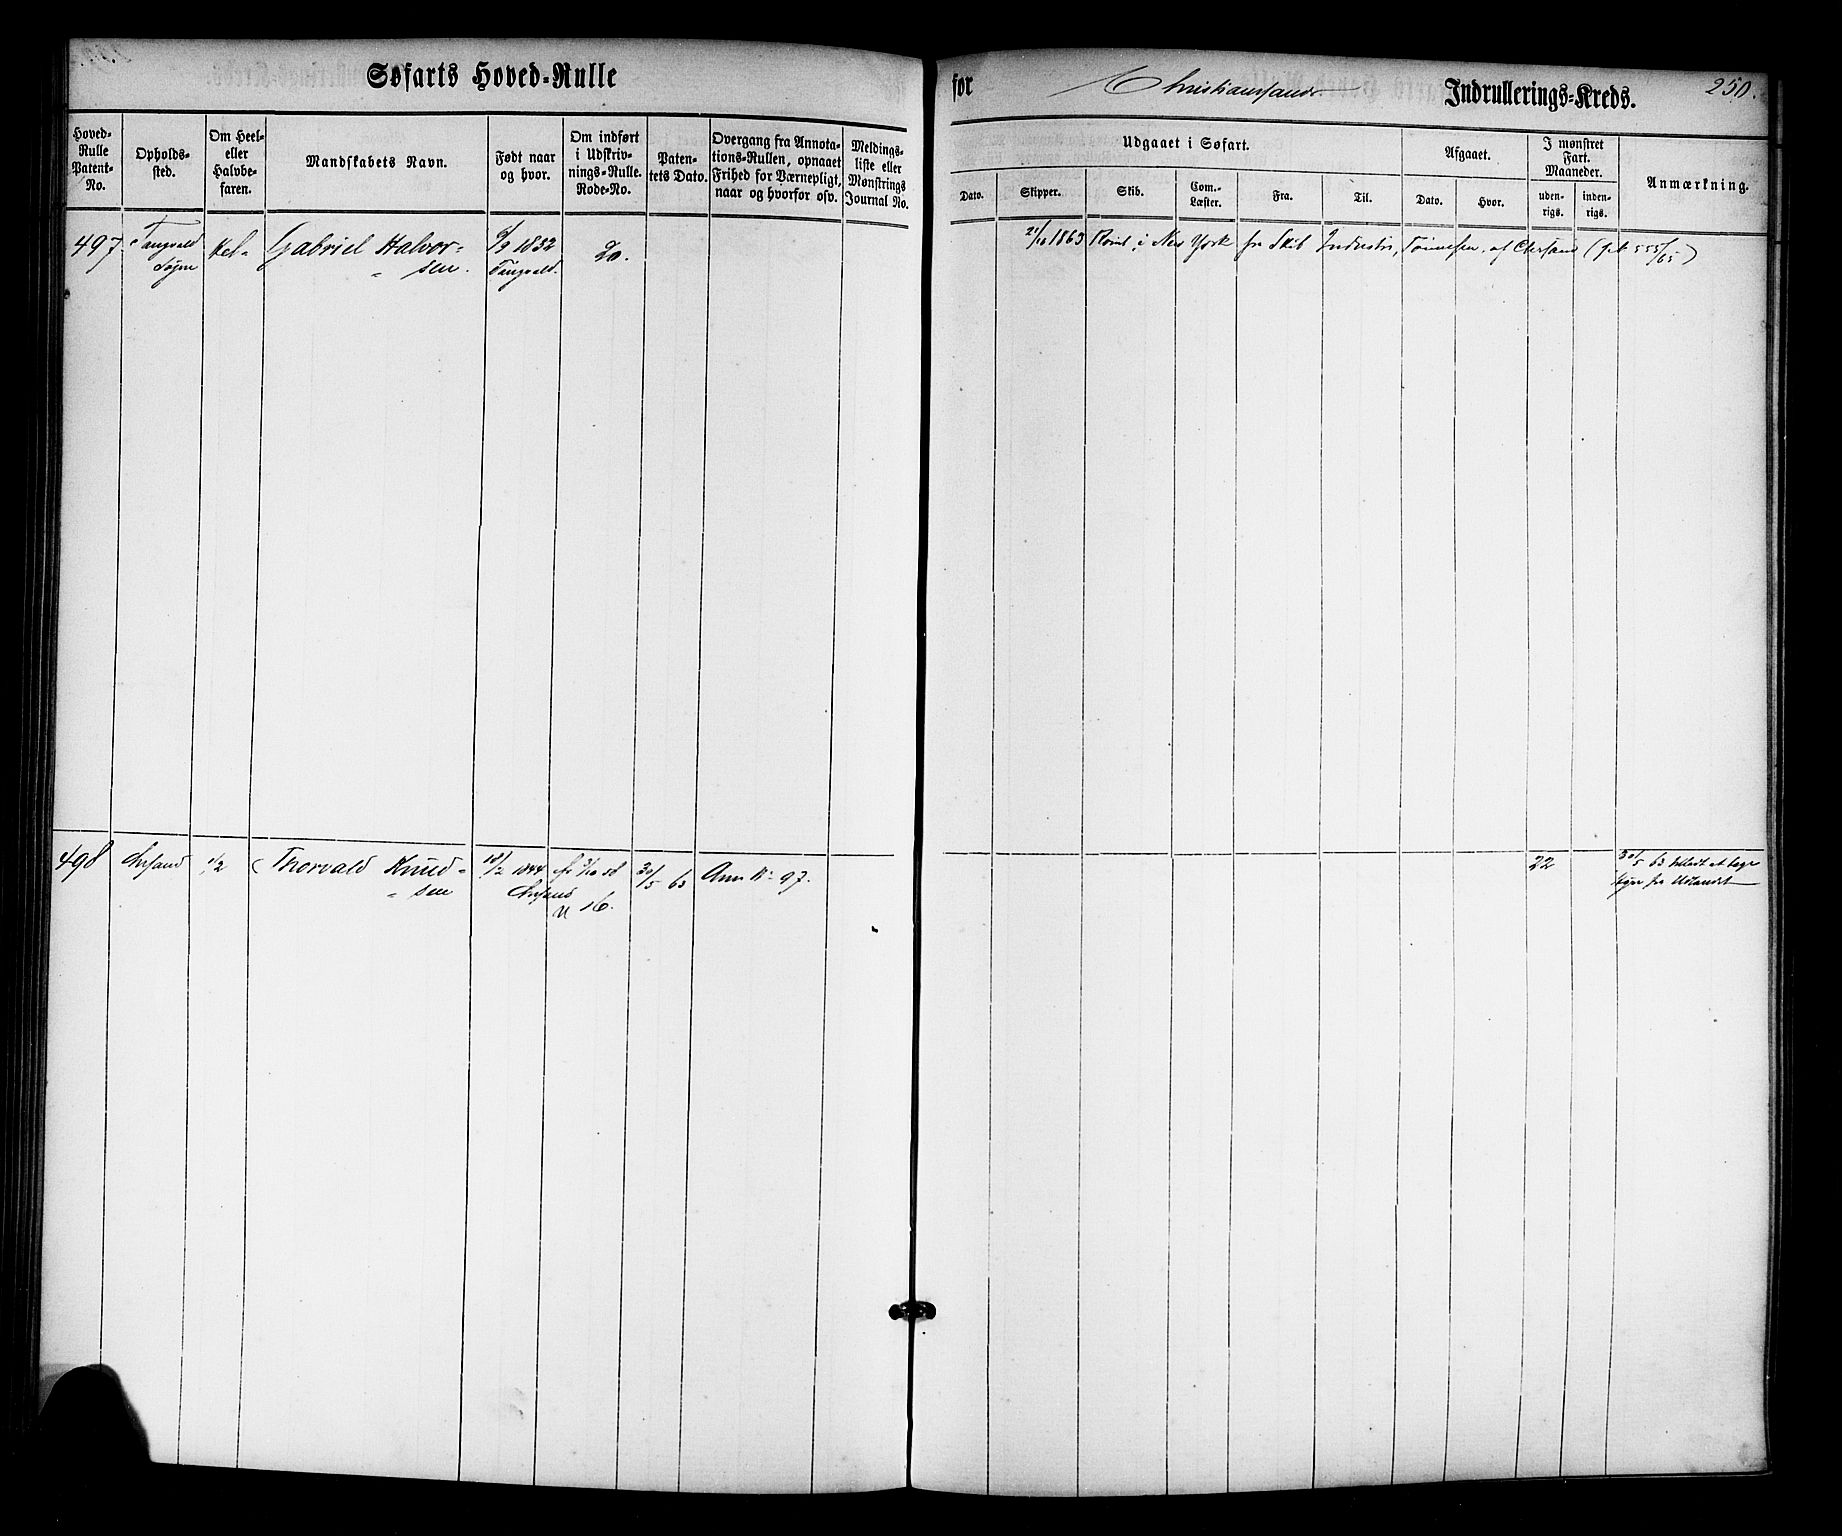 Søfarts Hoved-Rulle
for Christianssands Indrullerings-Kreds.
250.
Hoved-
Rulle
Patent-
No.
Opholds-
sted.
Om Heel-
eller
Halvbe-
faren.
Mandskabets Navn.
Født naar
og hvor.
Om indført
i Udskriv-
nings-Rulle.
Rode-No.
Paten-
tets Dato.
Overgang fra Annota-
tions-Rullen, opnaaet
Frihed for Værnepligt,
naar og hvorfor osv.
Meldings-
liste eller
Mønstrings
Journal No.
Udgaaet i Søfart.
Dato.
Skipper.
Skib.
Com.-
Læster.
Fra.
Til.
Afgaaet.
Dato.
Hvor.
I mønstret
Fart.
Maaneder.
uden-
rigs.
inden-
rigs.
Anmærkning.
497. Tangvald Hel- Gabriel Halvor- 6/9 1832 20. 21/10 1863 Rømt i New York fra Skib Industri, Tønnesen, af Chrsand (pk 555/65)
Søgne - sen. Tangvald.
498 Chrsand 1/2 Thorvald Knud- 18/2 1844 30/5 63 Ann N: 97. 22 30/5 63 tilladt at tage
- sen Chrsand N 16. Hyre fra Udlandet